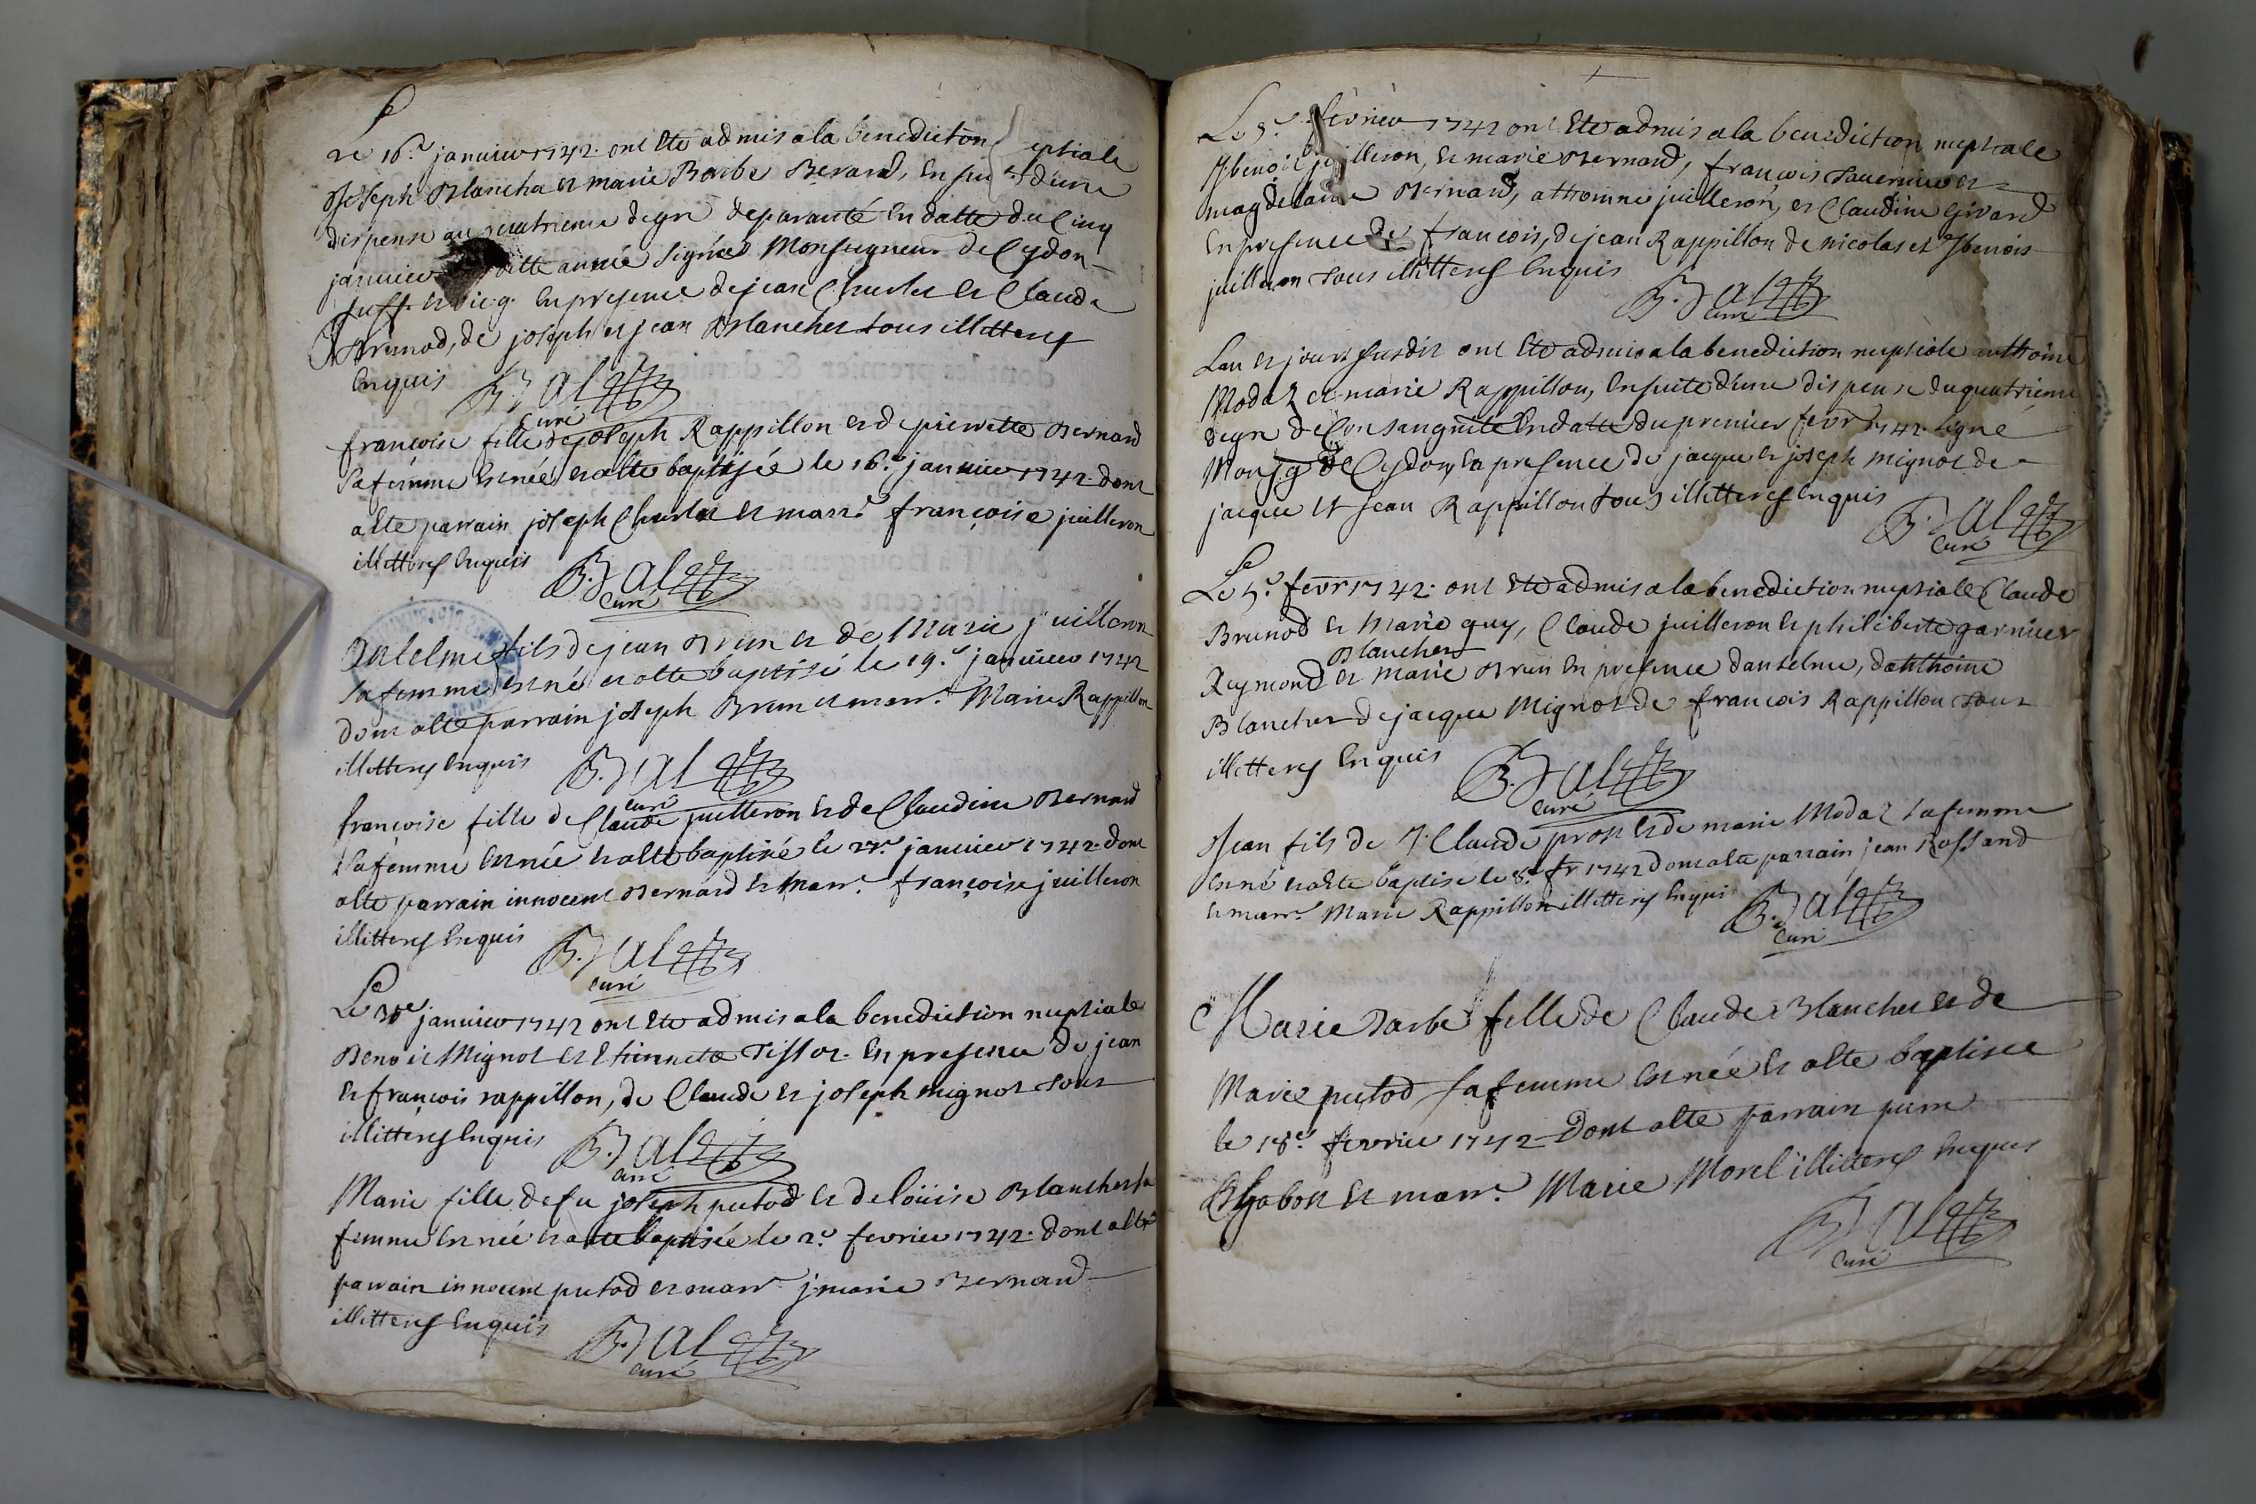 Le 16.e janvier 1742. ont ete admis a la benediction nuptiale
Joseph Blancha et marie Barbe Berard, en suite d'une
dispense au quatrieme degre de paranté en datte du cinq
janvier ditte année signée Monseigneur de Cydon
suff. et vic. g. en presence de jean Charles et Claude
Brunod, de joseph et jean Blanchet tous illitterés
enquis
curé
françoise fille de joseph Rappillon et de pierrette Bernard
sa femme est née et a ete baptisée le 16.e janvier 1742. dont
a ete parrain joseph Charles et marr.e françoise juilleron
illitterés enquis
curé
Anselme fils de jean Brun et de Marie juilleron
sa femme est né et a ete baptisé le 19.e janvier 1742
dont a ete parrain joseph Brun et marr.e Marie Rappillon
illitterés enquis
curé
françoise fille de Claude juilleron et de Claudine Bernard
sa femme est née et a ete baptisée le janvier 1742. dont
a ete parrain innocent Bernard et marr.e françoise juilleron
illitterés enquis
curé
Le 30e janvier 1742 ont ete admis a la benediction nuptiale
Benoit Mignot et Etiennete Tissot. en presence de jean
et françois rappillon, de Claude et joseph mignot tous
illitterés enquis
curé
Marie fille de fu joseph putod et de loüise Blanchet sa
femme est née et a ete baptisée le 2.e fevrier 1742. dont a ete
parrain innocent putod et marr.e j. marie Bernard
illitterés enquis
curé
Le 5.e février 1742 ont ete admis a la benediction nuptiale
benoit juilleron, et marie Bernard, françois et
magdelaine Bernard, athoine juilleron, et Claudine Girard
en presence de françois, de jean Rappillon de nicolas et benois
juilleron tous illitterés enquis
curé
L'an et jour susdit ont ete admis a la benediction nuptiale anthoine
Modaz et marie Rappillon, ensuite d'une dispense du quatrieme
degre de consanguité en datte du premier fevr 1742 signé
Monsg de Cydon, en presence de jacque et joseph mignot de
jacque et jean Rappillon tous illitterés enquis
curé
Le 5.e fevr 1742. ont ete admis a la benediction nuptiale Claude
Brunod et Marie guy, Claude juilleron et philiberte garnier
Blanchet
Reymond et marie Brun en presence d'anselme, d'anthoine
Blanchet de jacque Mignot de françois Rappillon tous
illitterés enquis
curé
Jean fils de J. Claude prost et de marie Modaz sa femme
est né et a ete baptisé le 8.e fr 1742 dont a ete parrain jean Rossand
et marr.e Marie Rappillon illitterés enquis
curé
Marie Barbe fille de Claude Blanchet et de
Marie putod sa femme est née et a ete baptisee
le 18.e fevrier 1742 Dont a ete parrain pierre
Chabot et marr.e Marie Morel illitterés enquis
curé